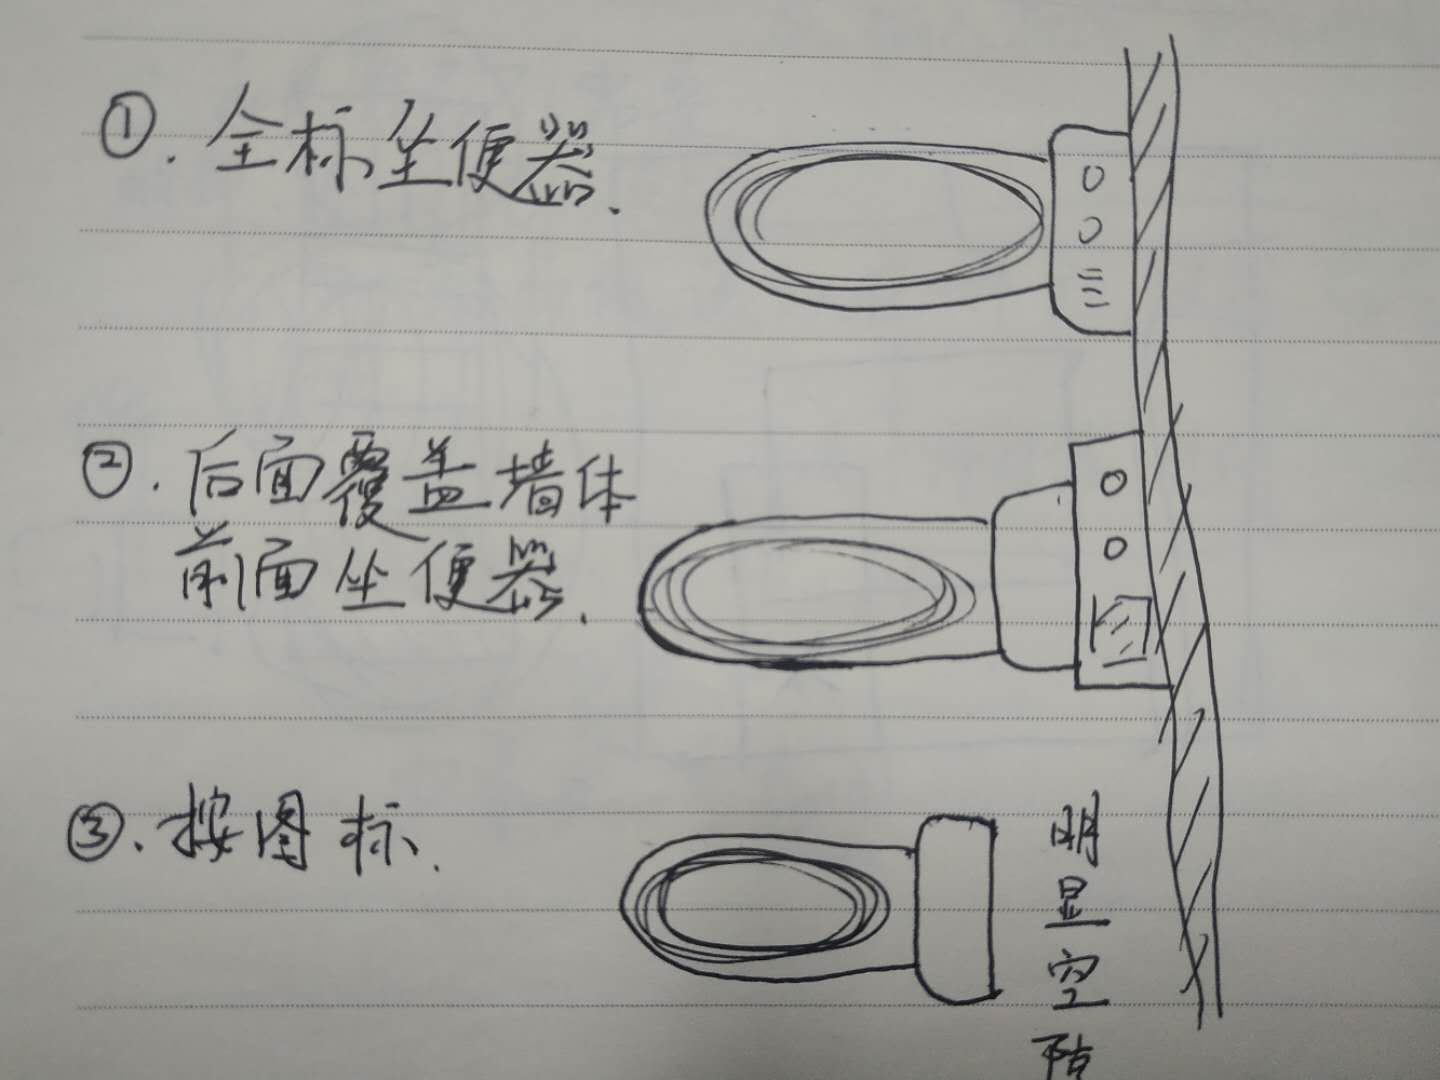 ①. 全标坐便器.
②. 后面覆盖墙体
前面坐便器.
③. 按图标.
明显空隙